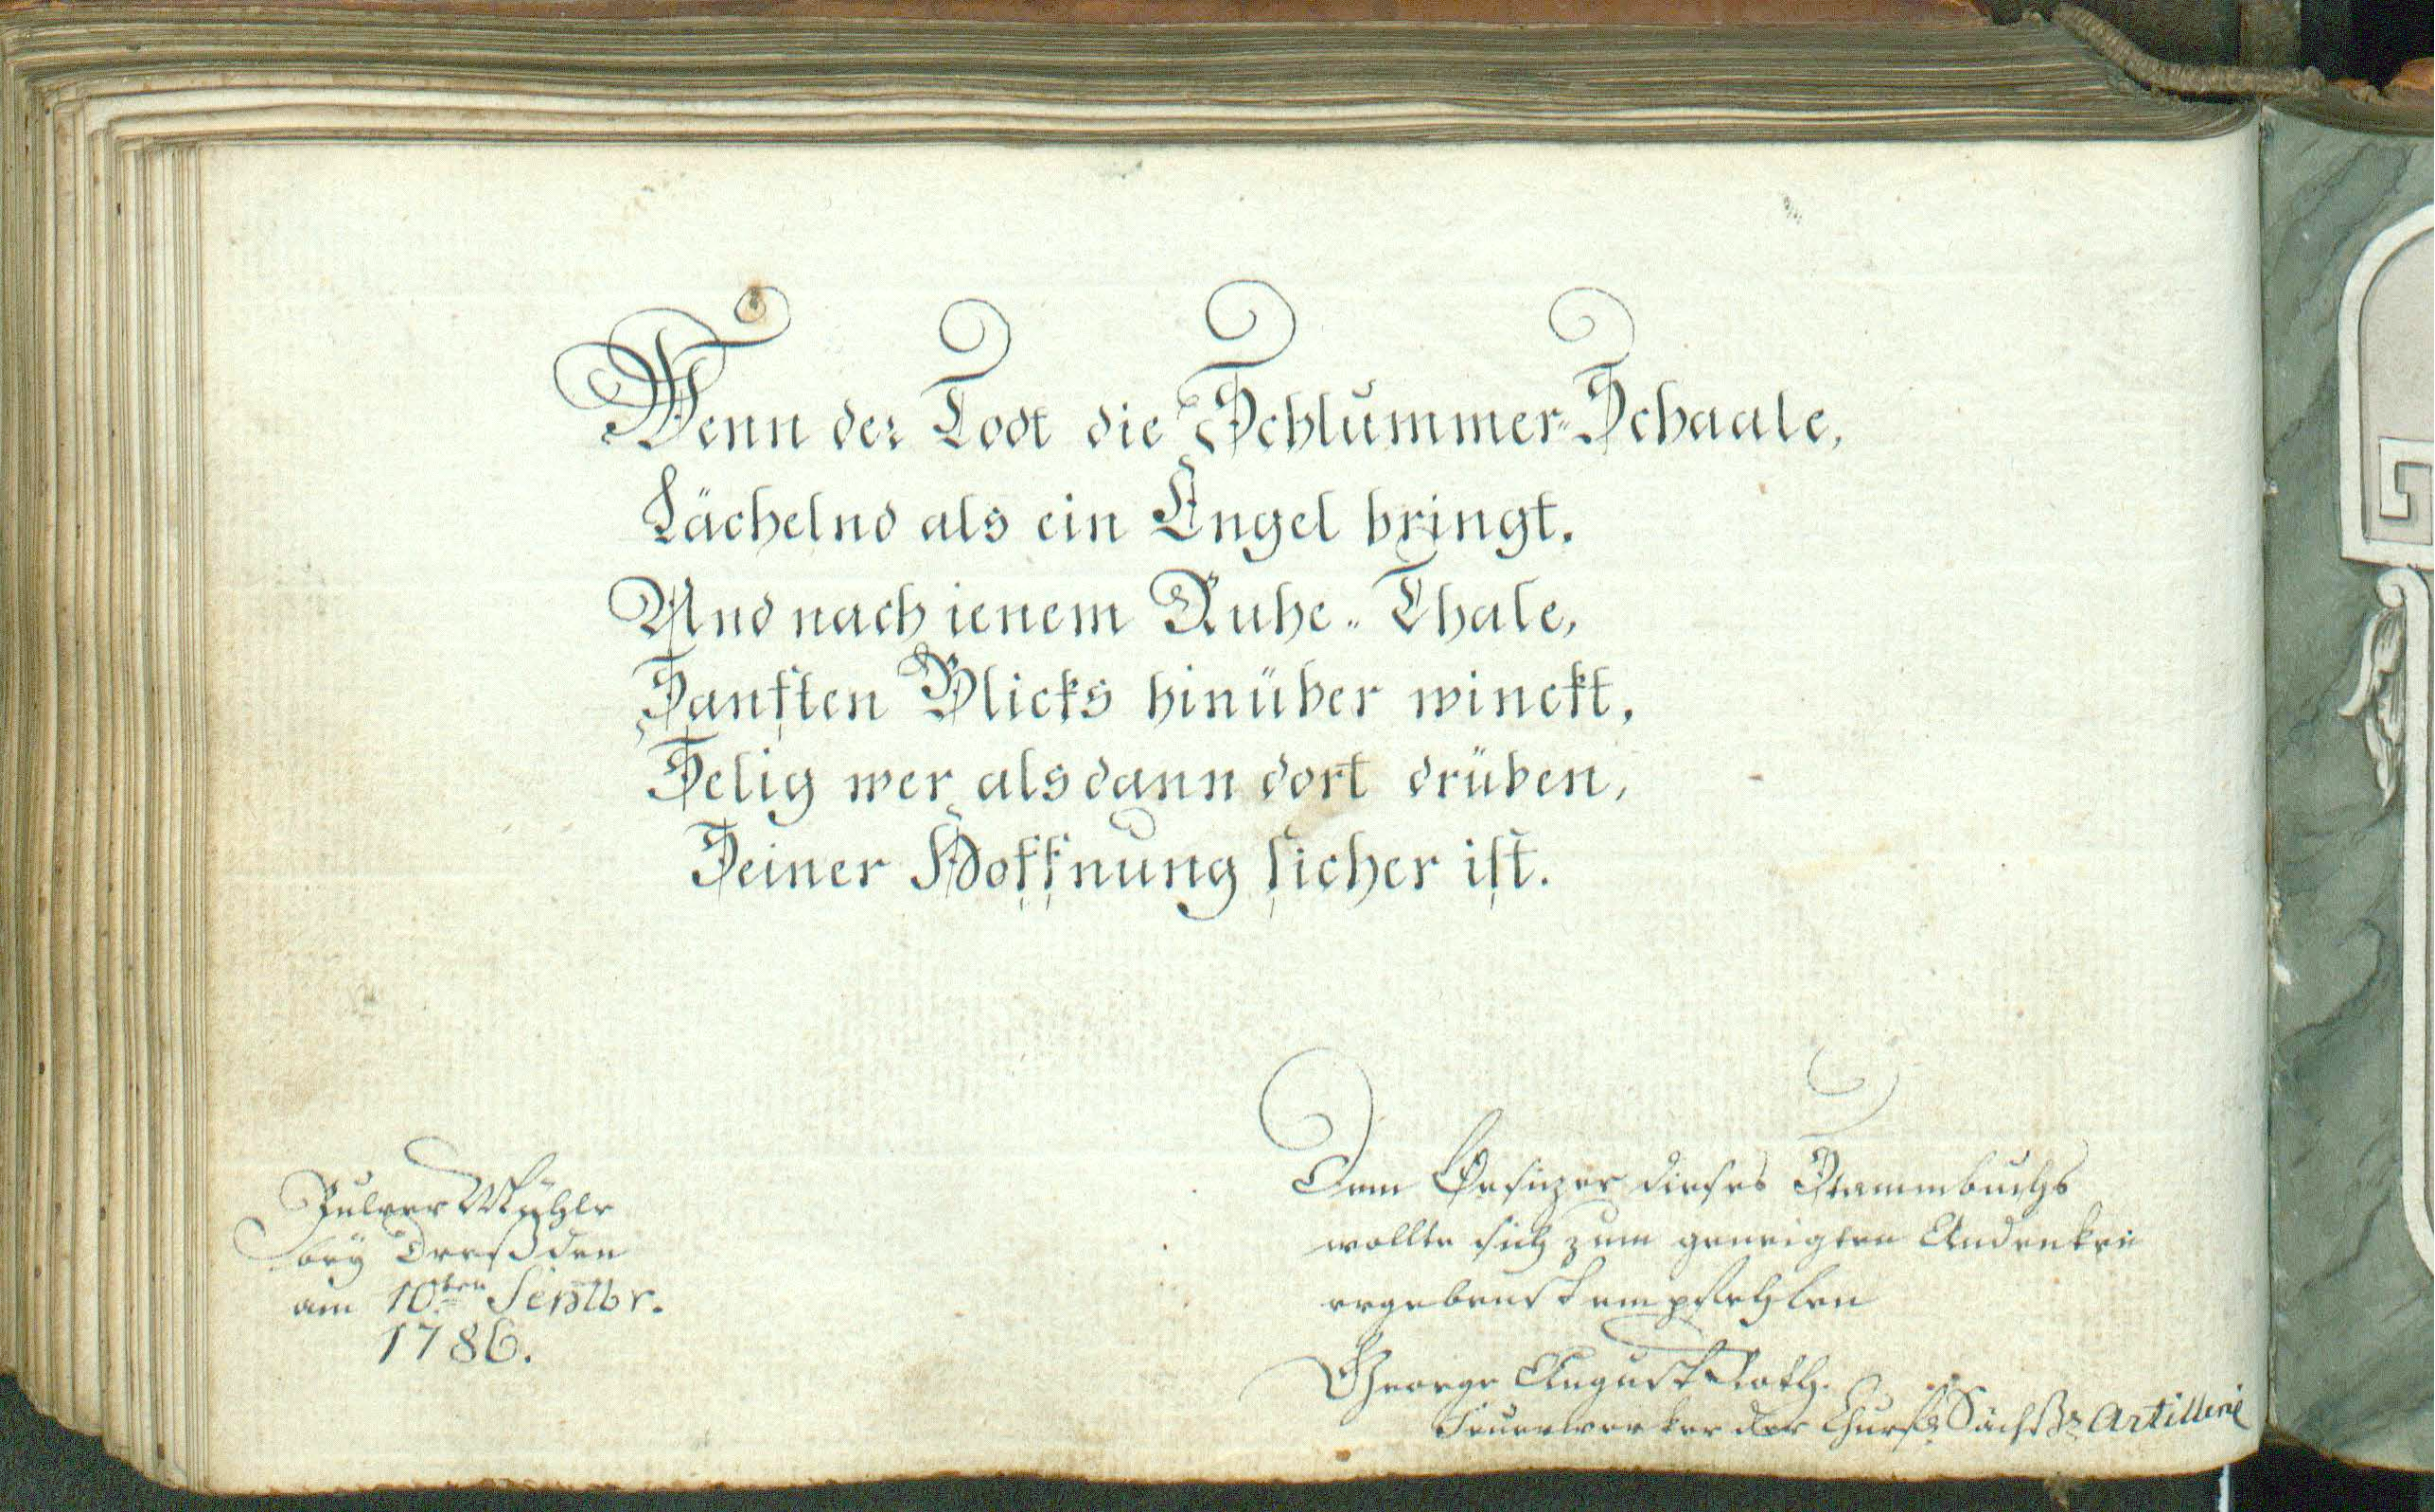 Wenn der Todt die Schlummer-Schaale,
Lächelnd als ein Engel bringt.
Und nach ienem Ruhe-Thale,
Sanften Blicks hinüber winckt,
Selig wer alsdann dort drüben,
Seiner Hoffnung sicher ist.
Pulver Mühle
bey Dreßden
am 10ten Septbr.
1786.
Dem Besizer dieses Stammbuchs
wollte sich zum geneigten Andenken
ergebenst empfehlen
George August Roth.
Feuerwerker der Churfl. Sächß. Artillerie